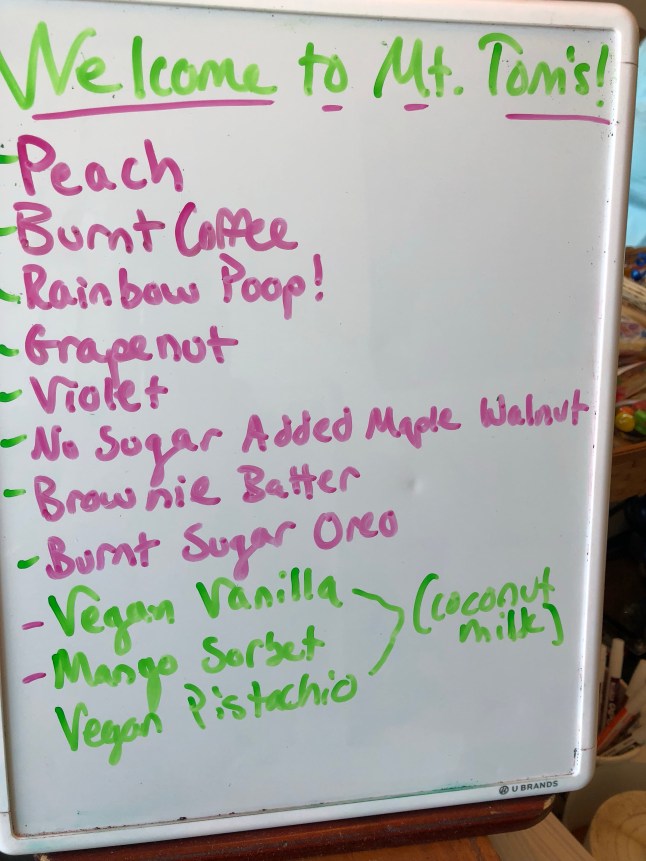 Welcome to Mt. Tom's!
- Peach
- Burnt Coffee
- Rainbow Poop!
- Grapenut
- Violet
- No Sugar Added Maple Walnut
- Brownie Batter
- Burnt Sugar Oreo
- Vegan Vanilla
(coconut
milk)
- Mango Sorbet
Vegan Pistachio
U BRANDS